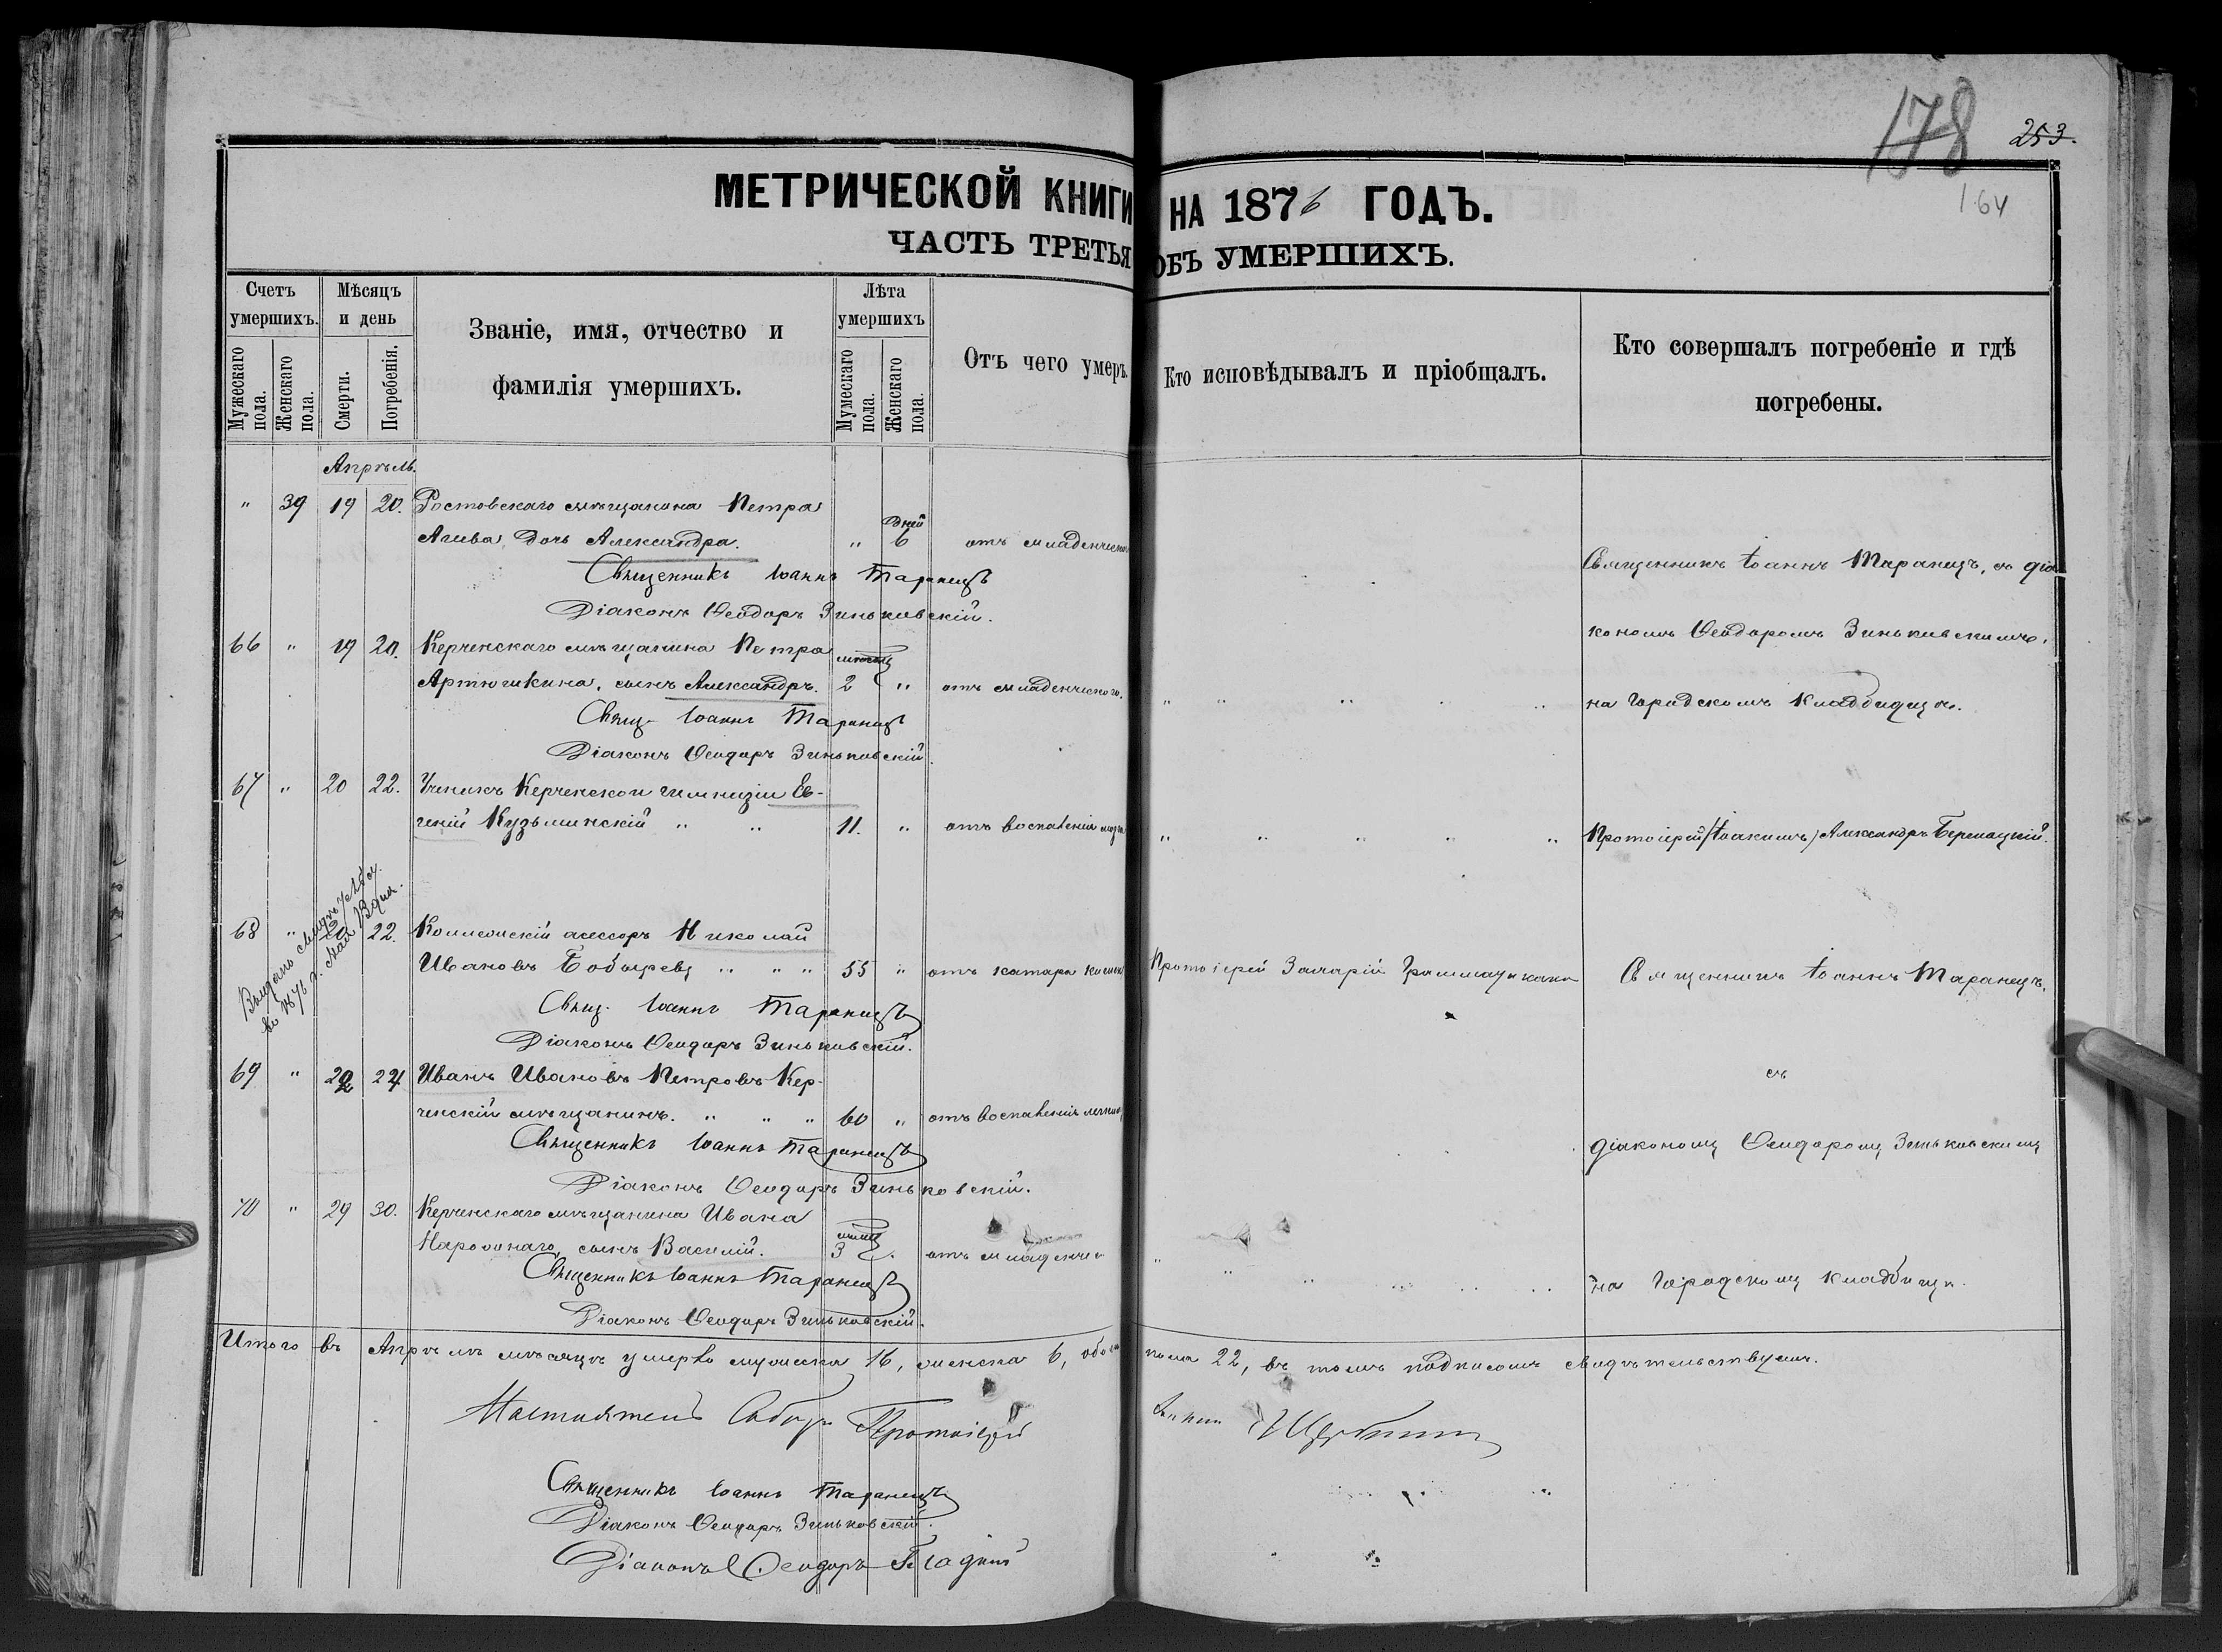 178
253.
164
МЕТРИЧЕСКОЙ КНИГИ НА 1876 ГОДЪ.
ЧАСТЬ ТРЕТЬЯ ОБЪ УМЕРШИХЪ.
Счетъ умершихъ.
Мужескаго пола.
Женскаго пола.
Мѣсяцъ и день
Смерти.
Погребенія.
Званіе, имя, отчество и
фамилія умершихъ.
Лѣта умершихъ
Мужескаго пола.
Женскаго пола.
Отъ чего умеръ.
Кто исповѣдывалъ и пріобщалъ.
Кто совершалъ погребеніе и гдѣ
погребены.
Апрѣль.
" 39 19 20. Ростовскаго мѣщанина Петра
дней
дочь Александра. " 6 отъ младенческ
Священникъ Іоаннъ Таранецъ
Священникъ Іоаннъ Таранецъ, съ діа
Діаконъ Ѳеодоръ Зиньковскій.
кономъ Ѳеодоромъ Зиньковскимъ.
66 " 19 20. Керченскаго мѣщанина Петра
Артюшкина, сынъ Александръ. 2 " отъ младенческаго. " " " " " на городскомъ кладбищѣ.
Свящ. Іоаннъ Таранецъ
Діаконъ Ѳеодоръ Зиньковскій.
67 " 20 22. Ученикъ Керченской гимназіи Ев-
геній Кузьминскій " " 11. " отъ воспаленія мозга " " " " " Протоіерей Александръ
68 " 20 22. Коллежскій асессоръ Николай
Выдано свидѣт
въ 1876 г. Мая дня.
Ивановъ Бобыревъ " " " 55 " отъ катара кишек Протоіерей Захарій Священникъ Іоаннъ Таранецъ,
Свящ. Іоаннъ Таранецъ
Діаконъ Ѳеодоръ Зиньковскій.
69 " 22 24 Иванъ Ивановъ Петровъ Кер-
съ
ченскій мѣщанинъ. " " " 60 " отъ воспаленія легких
Священникъ Іоаннъ Таранецъ
діакономъ Ѳеодоромъ Зиньковскимъ
Діаконъ Ѳеодоръ Зиньковскій.
70 " 29 30. Керченскаго мѣщанина Ивана
сынъ Василій. 3 " отъ младенче
" " " " " " на городскомъ кладбищѣ.
Священникъ Іоаннъ Таранецъ
Діаконъ Ѳеодоръ Зиньковскій.
Итого въ Апрѣлѣ мѣсяцѣ умерло мужеска 16, женска 6, обоего пола 22, въ томъ подписомъ свидѣтельствуемъ.
Настоятель Собора Протоіерей
Священникъ Іоаннъ Таранецъ
Діаконъ Ѳеодоръ Зиньковскій.
Діаконъ Ѳеодоръ Гладкій